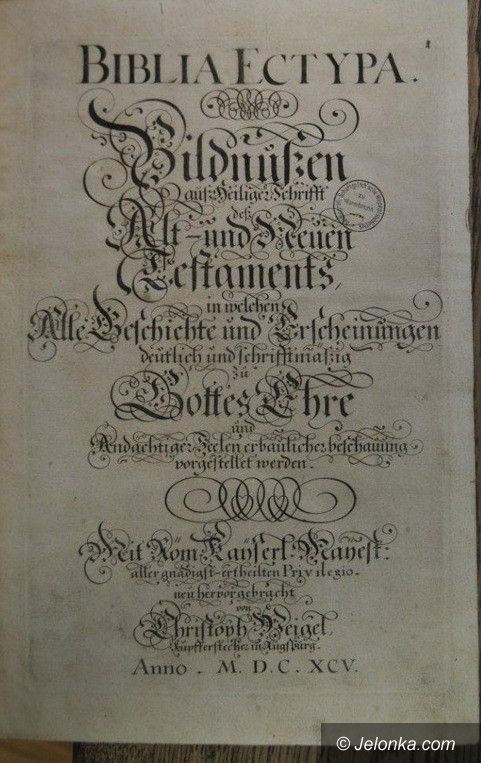 BIBLIA ECTYPA.
Bildnüßen
auß Heiliger Schrifft
deß
Alt- und Neuen
Testaments,
in welchen
Alle Geschichte und Erscheinungen
deutlich und schrifftmäßig
zu
Gottes Ehre
und
Andächtiger Seelen erbaulicher beschauung
vorgestellet werden.
Mit Röm. Kayserl. Mayest:
allergnädigst-ertheilten Privilegio.
neu hervorgebracht
von
Christoph Weigel,
Kupfferstecher in Augspurg.
Anno. M. D. C. XCV.
© Jelonka.com